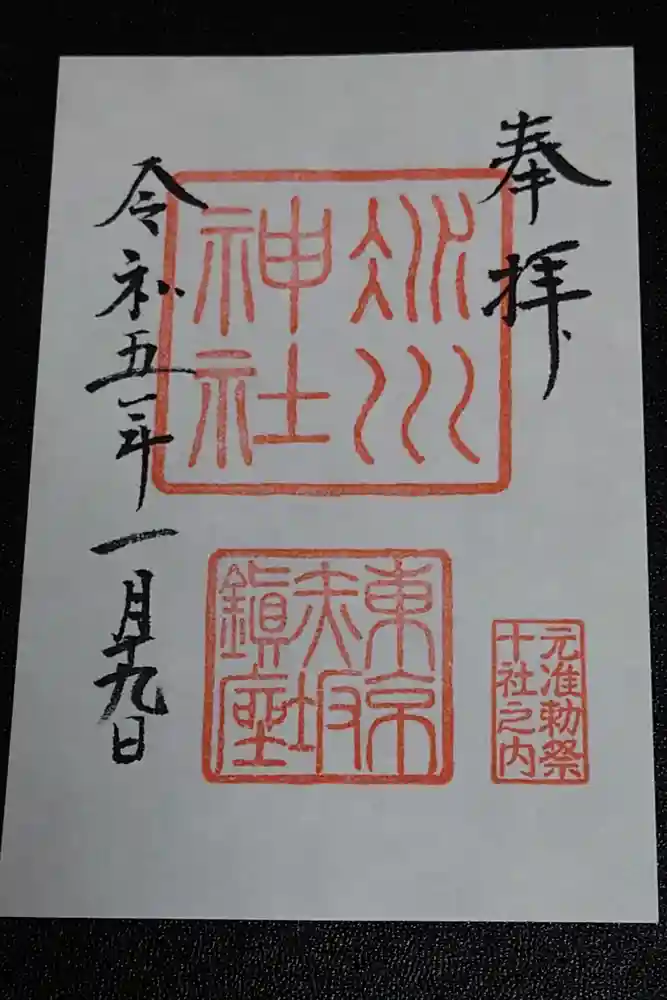 奉拝
氷川
神社
東京
赤坂
鎮座
元准勅祭
十社之内
令和五年一月十九日